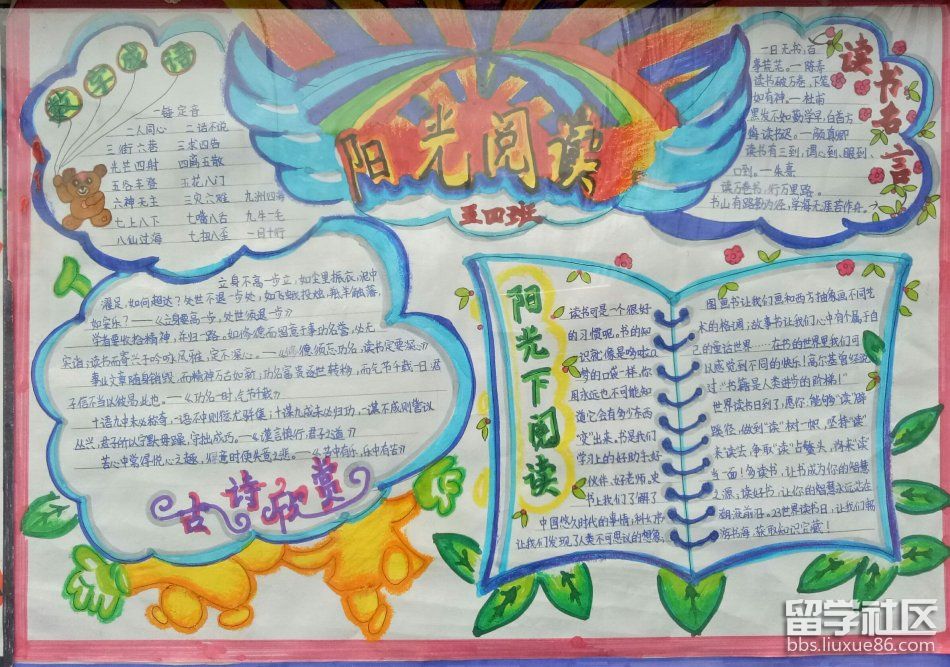 数字成语
一锤定音
二人同心 二话不说
三街六巷 三求四告
光芒四射 四离五散
五谷丰登 五花八门
六神无主 三灾六难 九洲四海
七上八下 七嘴八舌 九牛一毛
八仙过海 七扭八歪 一目十行
阳光阅读
五四班
读书名言
一日无书,百
事荒芜。—陈寿
读书破万卷,下笔
如有神。—杜甫
黑发不知勤学早,白首方
悔读书迟。—颜真卿
读书有三到,谓心到、眼到、
口到。—朱熹
读万卷书,行万里路。
书山有路勤为径,学海无涯苦作舟。
立身不高一步立,如尘里振衣,泥中
濯足,如何超达?处世不退一步处,如飞蛾投烛,羝羊触藩,
如何安乐?——《立身要高一步,处世须退一步》
学者要收拾精神,并归一路。如修德而留意于事功名誉,必无
实诣;读书而寄兴于吟咏风雅,定不深心。——《修德须忘功名,读书定要深心》
事业文章随身销毁,而精神万古如新;功名富贵逐世转移,而气节千载一日,君
子信不当以彼易此也。——《功名一时,气节千载》
十语九中未必称奇,一语不中则愆尤骈集;十谋九成未必归功,一谋不成则訾议
丛兴,君子所以宁默毋躁,宁拙毋巧。——《谨言慎行,君子之道》
苦心中常得悦心之趣,得意时便失意之悲。——《苦中有乐,乐中有苦》
古诗欣赏
阳光下阅读
读书可是一个很好
的习惯呢。书的知
识就像是哆啦A
梦的口袋一样,你
且永远也不可能知
道它会有多少东西
“变”出来,书是我们
学习上的好助手好
伙伴、好老师,史
书上我们了解了
中国悠久时代的事情;科幻书
让我们发现了人类不可思议的想象,
图画书让我们画和西方抽象画不同艺
术的格调;故事书让我们心中有个属于自
己的童话世界……在书的世界里我们可
以感受到不同的快乐!高尔基曾经说
过:“书籍是人类进步的阶梯!”
世界读书日到了,愿你,能够“读”辟
蹊径,做到“读”树一帜,坚持“读”
来读去,争取“读”占鳌头,将来“读
当一面”!多读书,让书成为你的智慧
之源,读好书,让你的智慧永远站在
潮流前沿。23世界读书日,让我们畅
游书海,获取知识宝藏!
留学社区
bbs.liuxue86.com